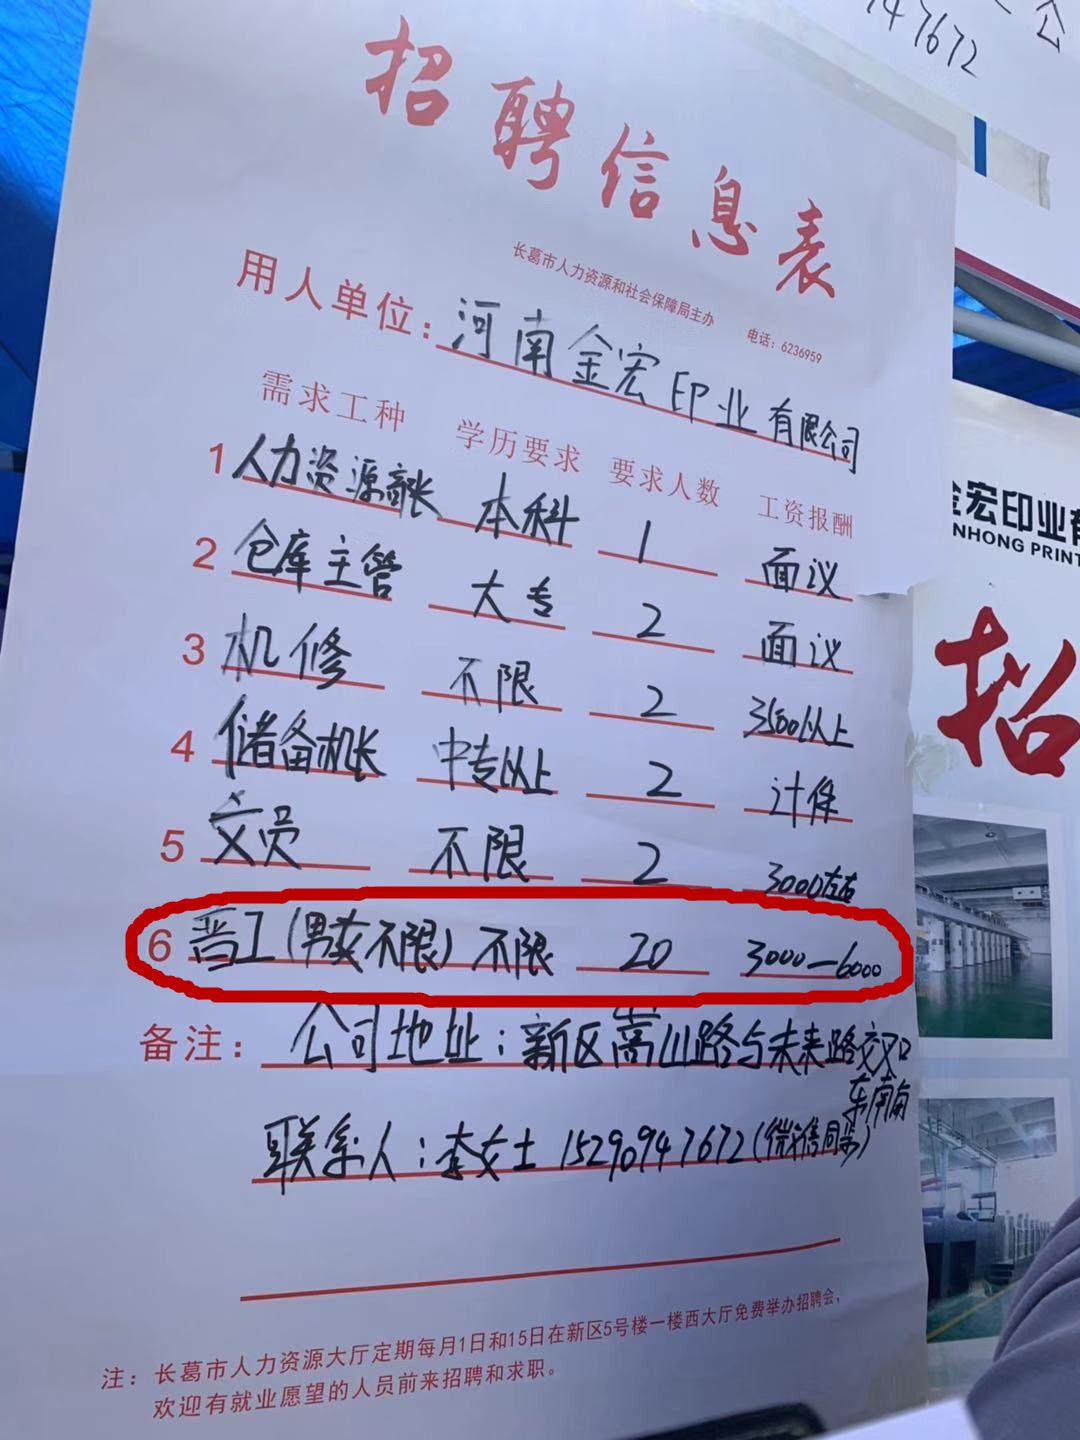 招聘信息表
长葛市人力资源和社会保障局主办 电话：6236959
用人单位：河南金宏印业有限公司
需求工种 学历要求 要求人数 工资报酬
1 人力资源部长 本科 1 面议
2 仓库主管 大专 2 面议
3 机修 不限 2 3500以上
4 储备机长 中专以上 2 计件
5 文员 不限 2 3000左右
6 普工（男女不限） 不限 20 3000—6000
备注：公司地址：新区嵩山路与未来路交叉口
东南角
联系人：李女士 15290947672（微信同号）
注：长葛市人力资源大厅定期每月1日和15日在新区5号楼一楼西大厅免费举办招聘会，
欢迎有就业愿望的人员前来招聘和求职。
公
47672
金宏印业有
NHONG PRINT
招